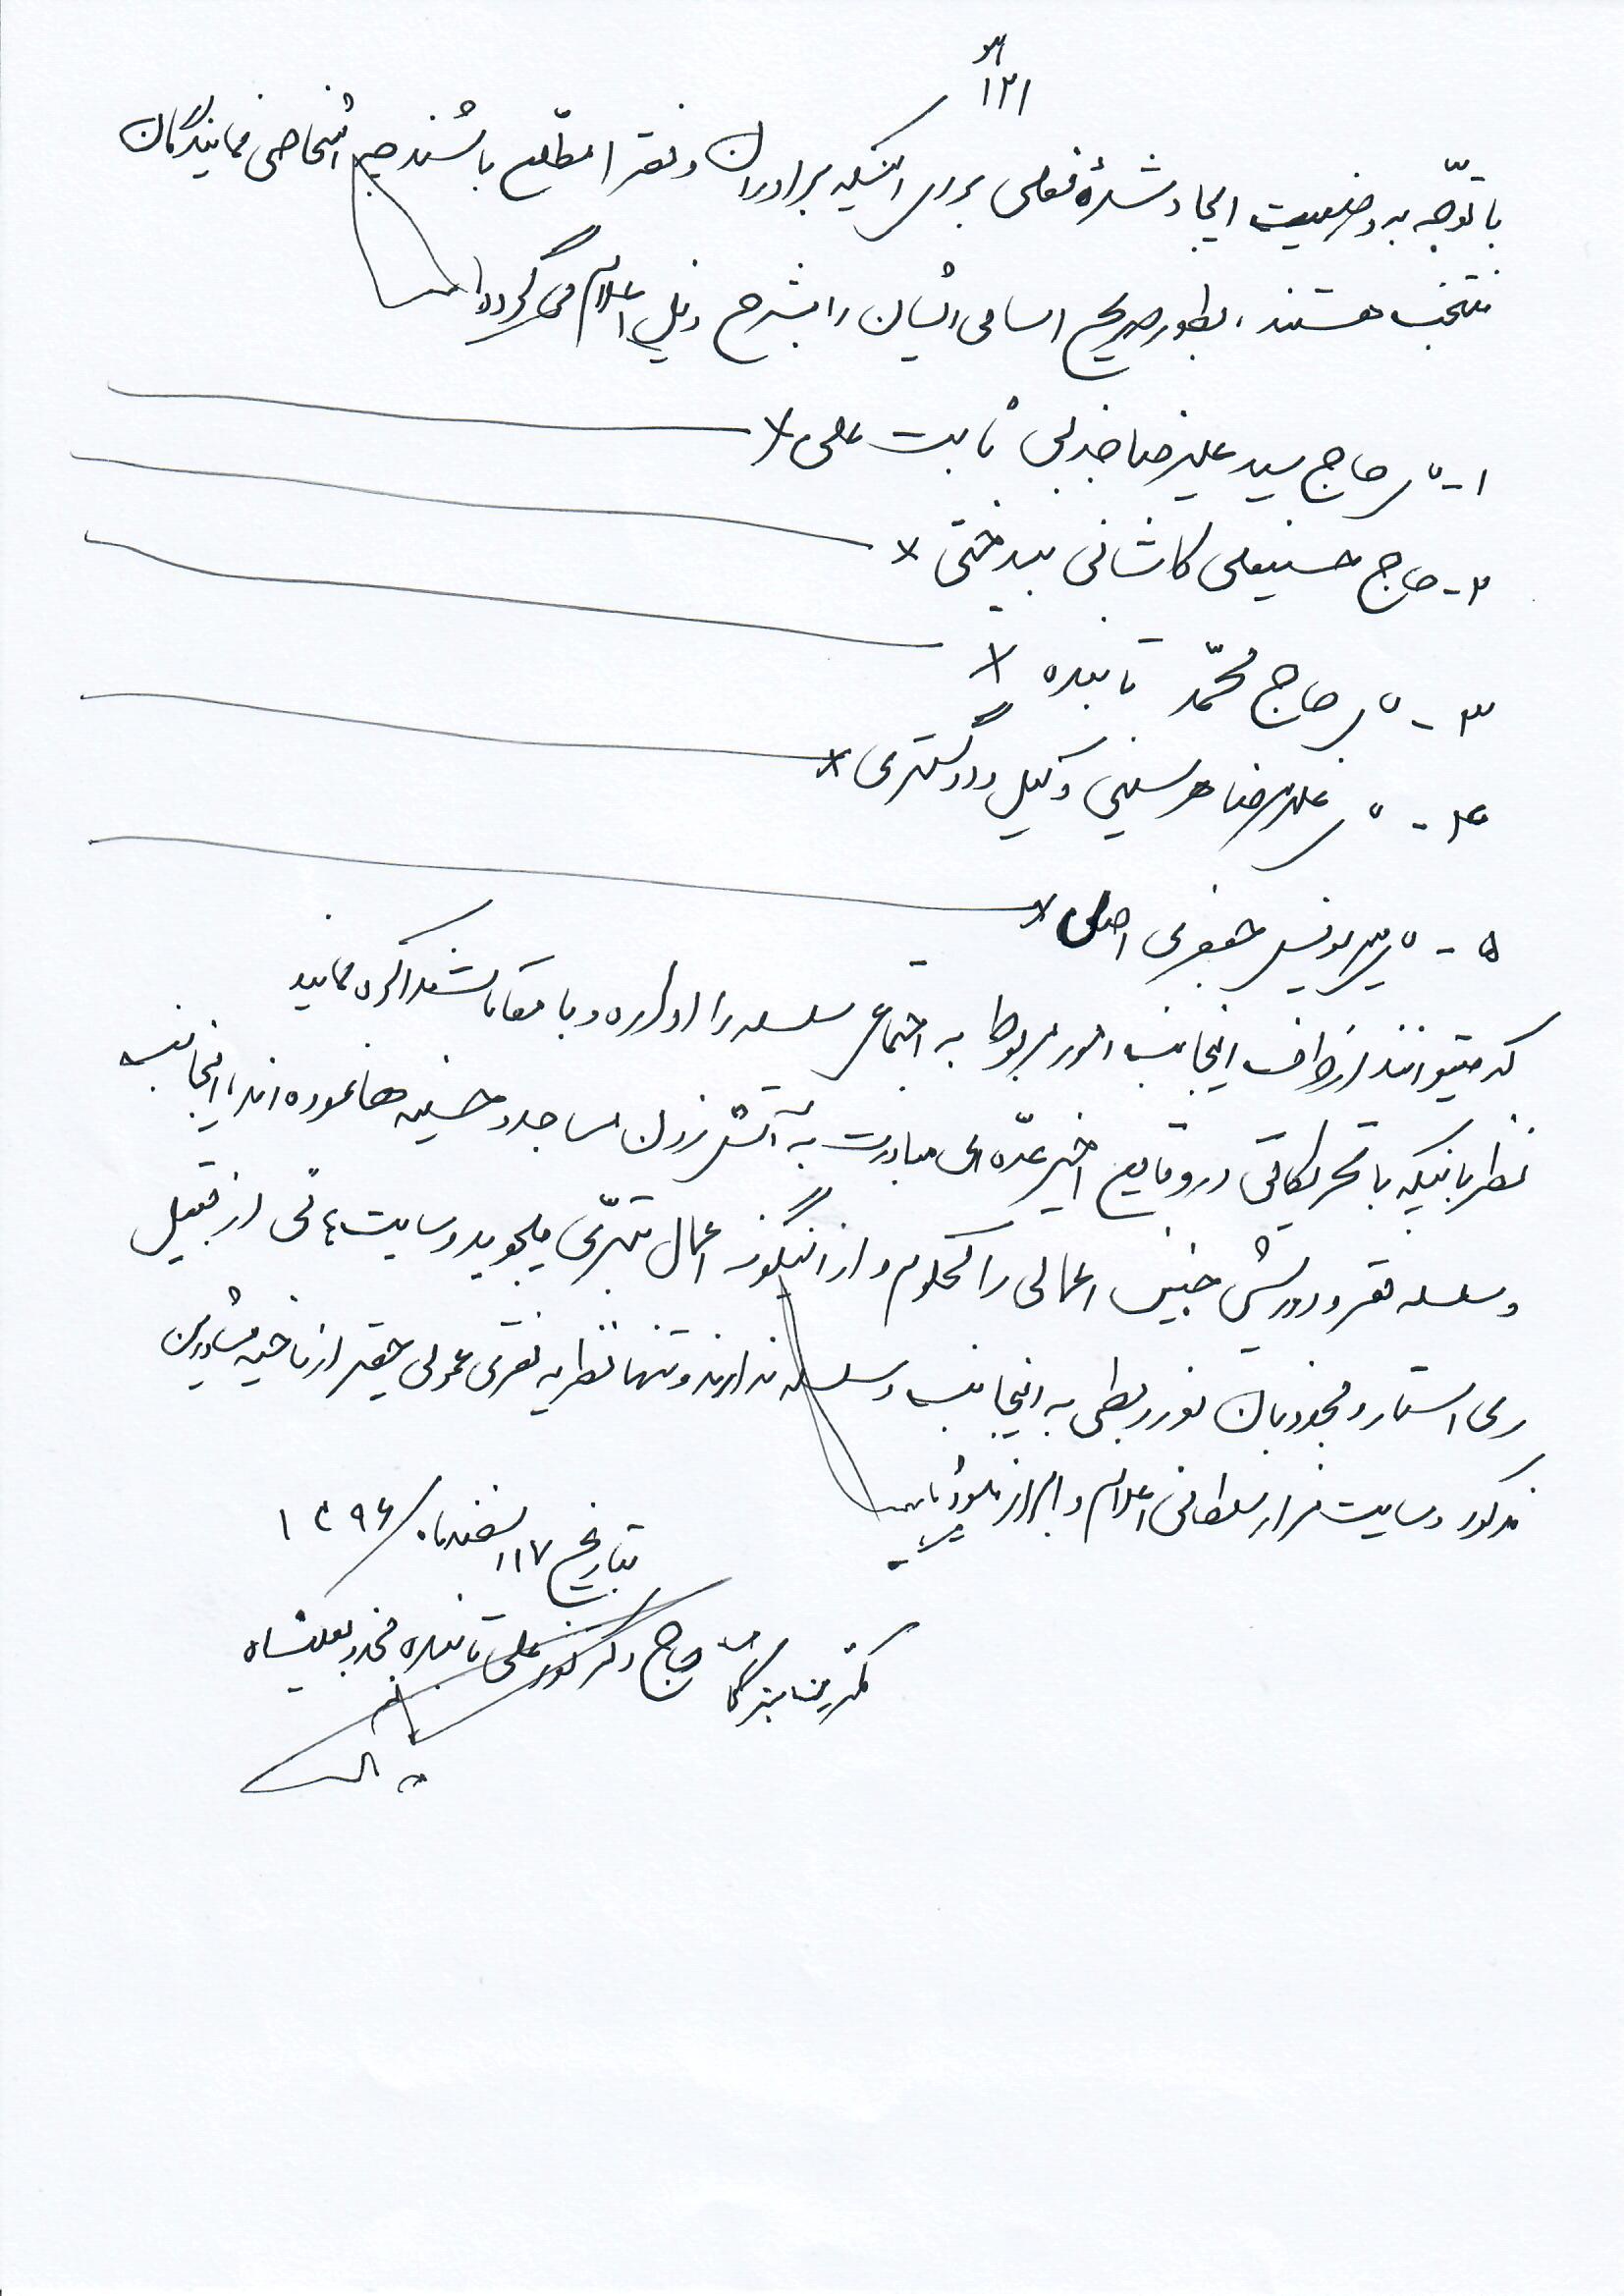 هو
۱۲۱
با توجّه به وضعیت ایجاد شدهٔ فعلی برای اینکه برادران و فقرا مطّلع باشند چه اشخاصی نمایندگان
منتخب هستند، بطور صریح اسامی ایشان را بشرح ذیل اعلام می گردد
۱- حاج سید علیرضا جذبی ثابت علی ×
۲- حاج حسینعلی کاشانی بیدختی ×
۳- حاج محمّد تابنده ×
۴- علیرضا هرسینی وکیل دادگستری ×
۵- یونس جعفری اصل ×
که میتوانند از طرف اینجانب امور مربوط به اجتماع سلسله را اداره و با مقامات مذاکره نمایند
نظر باینکه با تحریکاتی در وقایع اخیر عدّه ای مبادرت به آتش زدن مساجد و حسینیه ها نموده اند، اینجانب
و سلسله فقر و درویشی چنین اعمالی را محکوم و از اینگونه اعمال تبرّی میجوید و سایت هائی از قبیل
و مجذوبان نور ربطی به اینجانب و سلسله ندارند و تنها نظریه فقری عمومی حقیر از ناحیه مشاورین
مذکور و سایت مزار سلطانی اعلام و ابراز
بتاریخ ۱۷ اسفندماه ۱۳۹۶
حاج دکتر نورعلی تابنده مجذوبعلیشاه